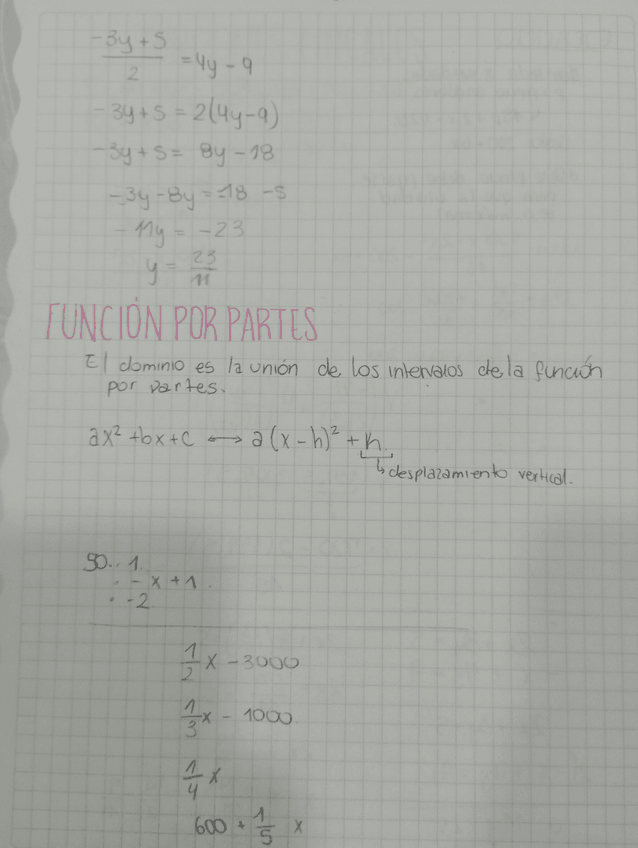 -3y + 5 / 2 = 4y - 9
-3y + 5 = 2(4y - 9)
-3y + 5 = 8y - 18
-3y - 8y = -18 - 5
-11y = -23
y = 23/11
FUNCIÓN POR PARTES
El dominio es la unión de los intervalos de la función
por partes.
ax² + bx + c ⟷ a(x - h)² + k
↳ desplazamiento vertical.
50. · 1
· - x + 1
· -2
1/2 x - 3000
1/3 x - 1000
1/4 x
600 + 1/5 x